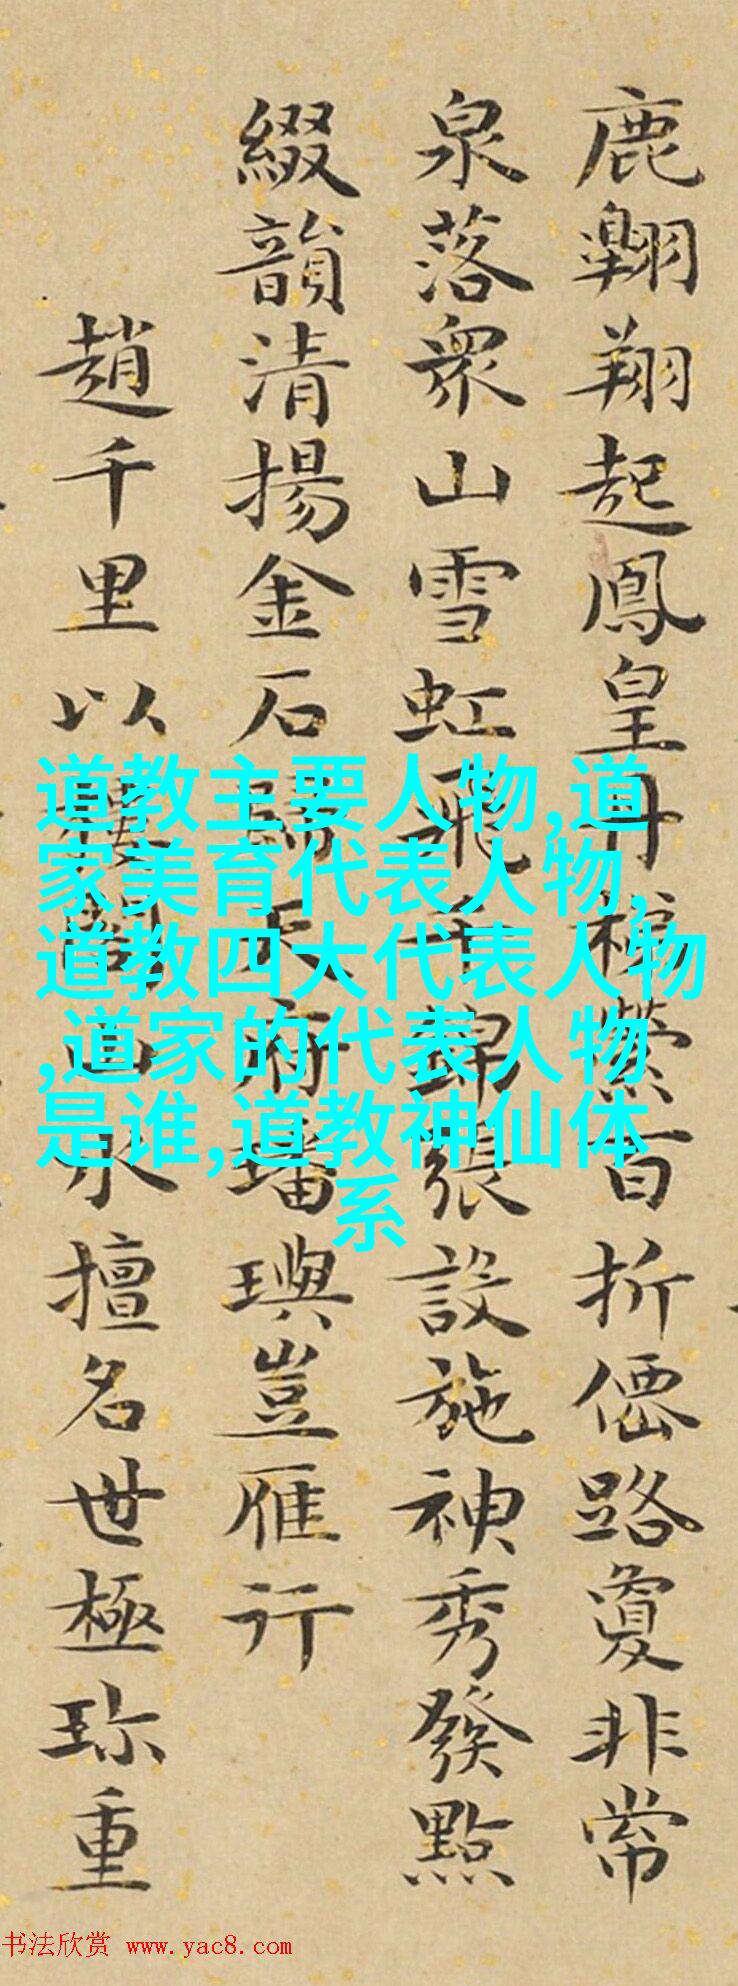 鹿翱翔起鳳皇丹梯縈百折僊路敻非常
泉落衆山雪虹飛千錦張設施神秀發點
綴韻清揚金石歸天府璠璵豈雁行
趙千里以樓閣山水擅名世極珎重
道教主要人物,道
家美育代表人物,
道教四大代表人物
,道家的代表人物
是谁,道教神仙体
系
书法欣赏 www.yac8.com